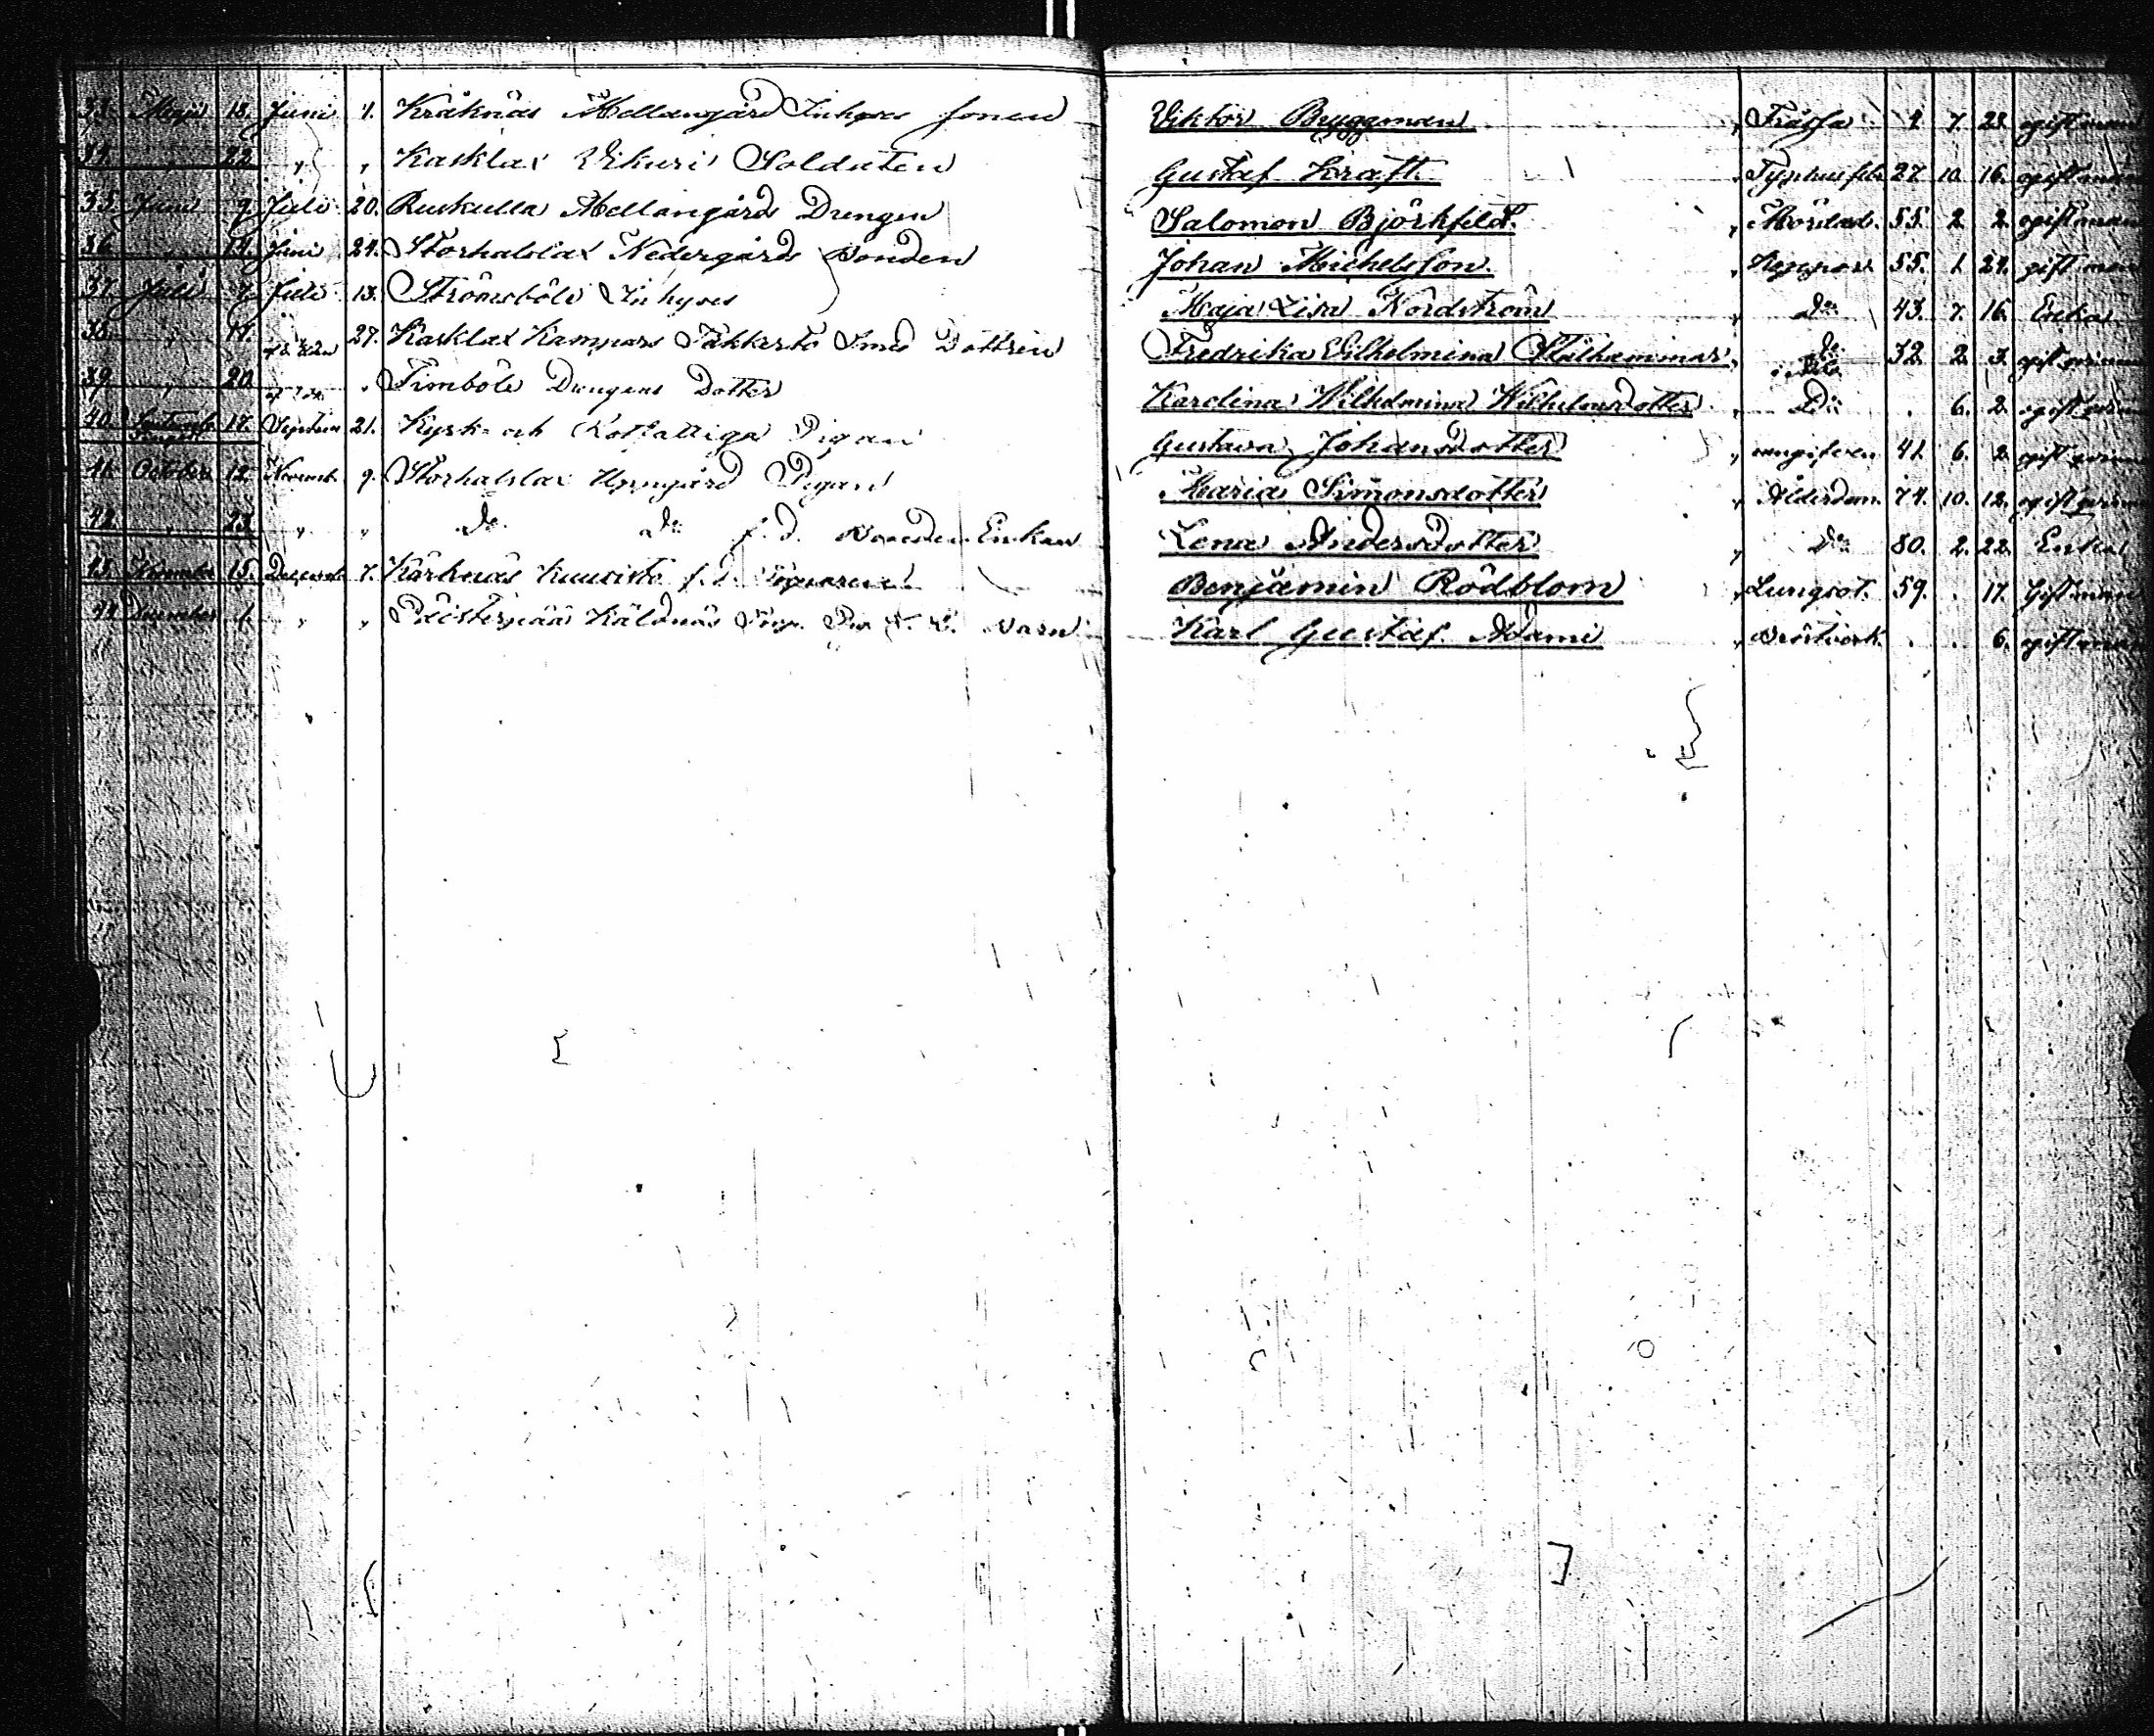 33. Maji 18. Juni 4. Kråknäs Mellangård Inhyses sonen Viktor Bryggman, Frossa 1. 7. 23. ogift man
34. " 22. " " Kasklax Vikuri Soldaten Gustaf Kraft, Typhus feb. 27. 10. 16. ogift man
35. Juni 9. Juli 20. Ruskulla Mellangårds Drengen Salomon Björkfeldt, 55. 2. 2. ogift man
36. " 14. Juni 24. Storhalslax Nedergårds Bonden Johan Michelsson, Koppor 55. 1. 24. gift man
37. Juli 7. Juli 13. Strömsböle Inhyses Maja Lisa Nordström, do 43. 7. 16. Enka
38. " 11. 27. Kasklax Kampers Smed Dottren Fredrika Wilhelmina Stålhammar, do 32. 2. 3. ogift
39. " 20. " Simböle Drengens Dotter Karolina Wilhelmina Wilhelmsdotter, Do . 6. 2. ogift
40. 17. Septem 21. Kyrk- och Rotfattiga Pigan Gustava Johansdotter, 41. 6. 2. ogift
41. October 12. Novemb. 9. Storhalslax Uppgård Pigan Maria Simonsdotter, Ålderdom. 74. 10. 12. ogift
42. " 23. " " do do f. d. Bonden Enkan Lena Andersdotter, do 80. 2. 22. Enka
43. November 15. December 7. Kårknäs Kuusisto f. d. Benjamin Rödblom, Lungsot. 59. . 17. Gift man
44. December 1. " " Pröisterpää Käldnäs Barn Karl Gustaf Adami, Bröstverk. . . 6. ogift man